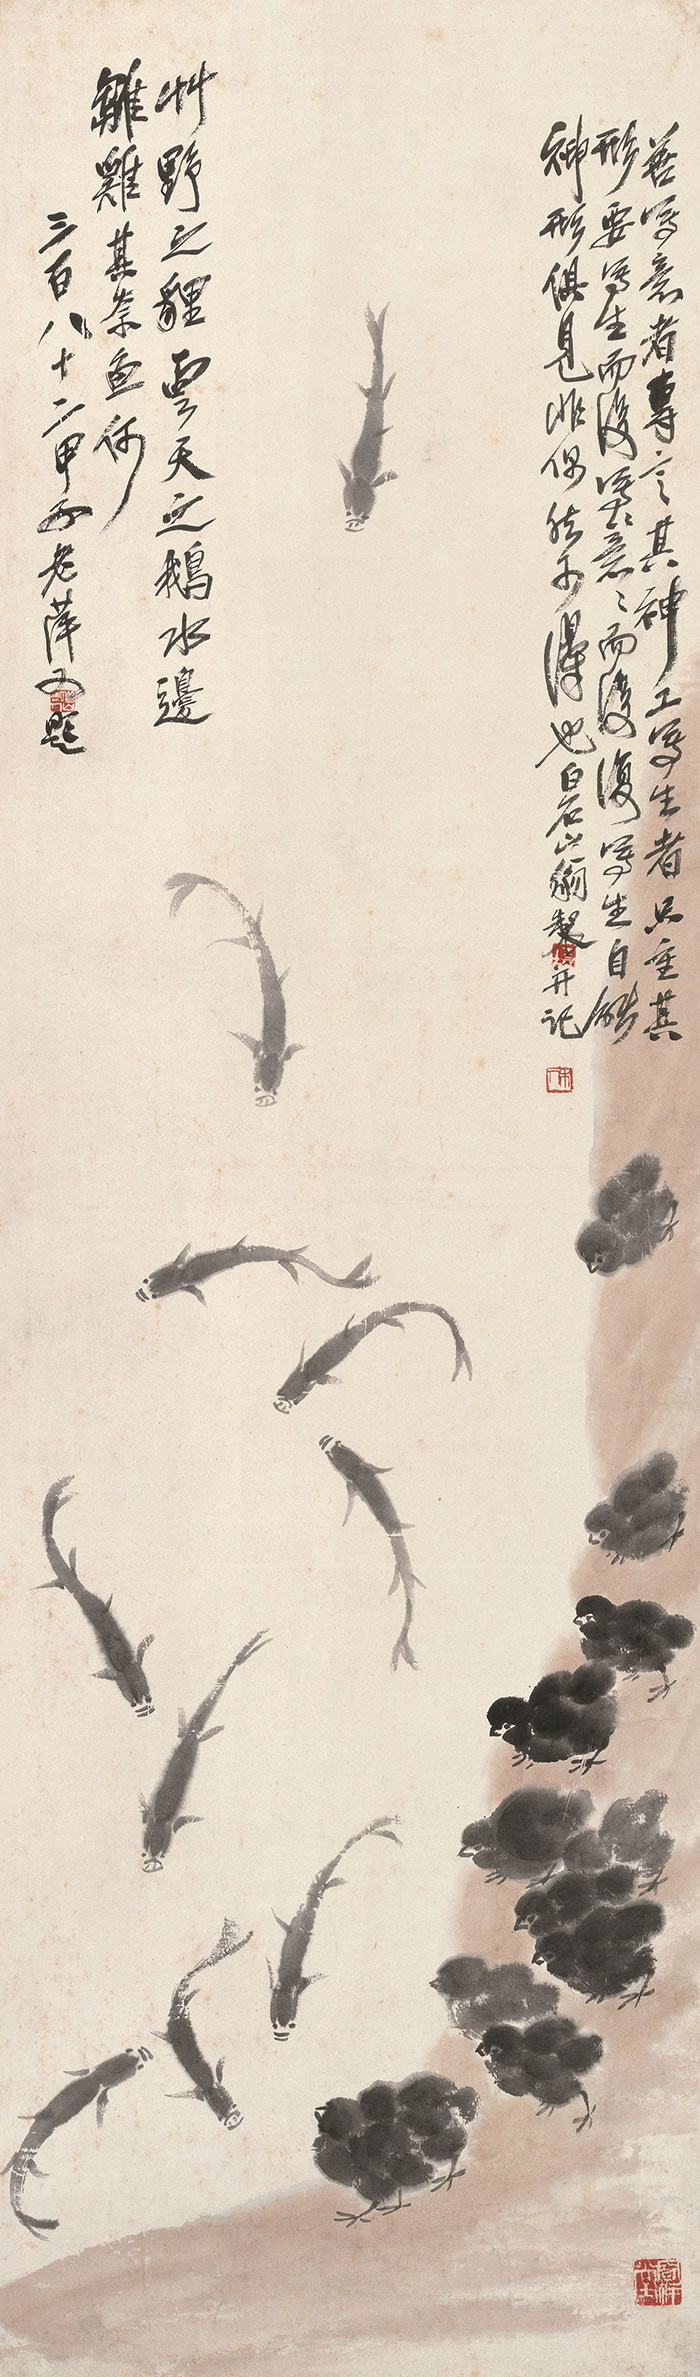 善寫意者專言其神工寫生者只重其
形要寫生而後寫意寫意而後復寫生自能
神形俱見非偶然可得也白石山翁製並記
艸野之貍雲天之鵝水邊
雛雞其奈魚何
三百八十二甲子老萍又題